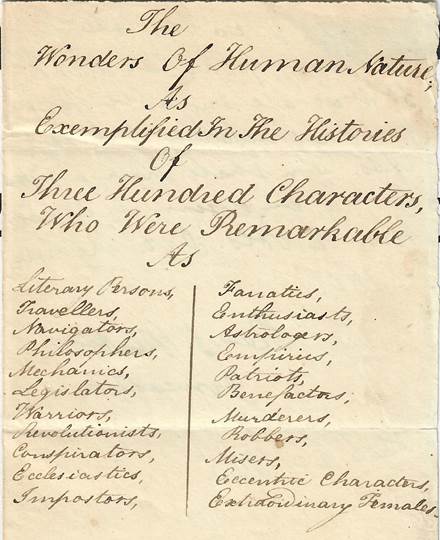 The
Wonders Of Human Nature,
As
Exemplified In The Histories
Of
Three Hundred Characters,
Who Were Remarkable
As
Literary Persons,
Travellers,
Navigators,
Philosophers,
Mechanics,
Legislators,
Warriors,
Revolutionists,
Conspirators,
Ecclesiastics,
Impostors,
Fanatics,
Enthusiasts,
Astrologers,
Empirics,
Patriots,
Benefactors,
Murderers,
Robbers,
Misers,
Eccentric Characters,
Extraordinary Females.